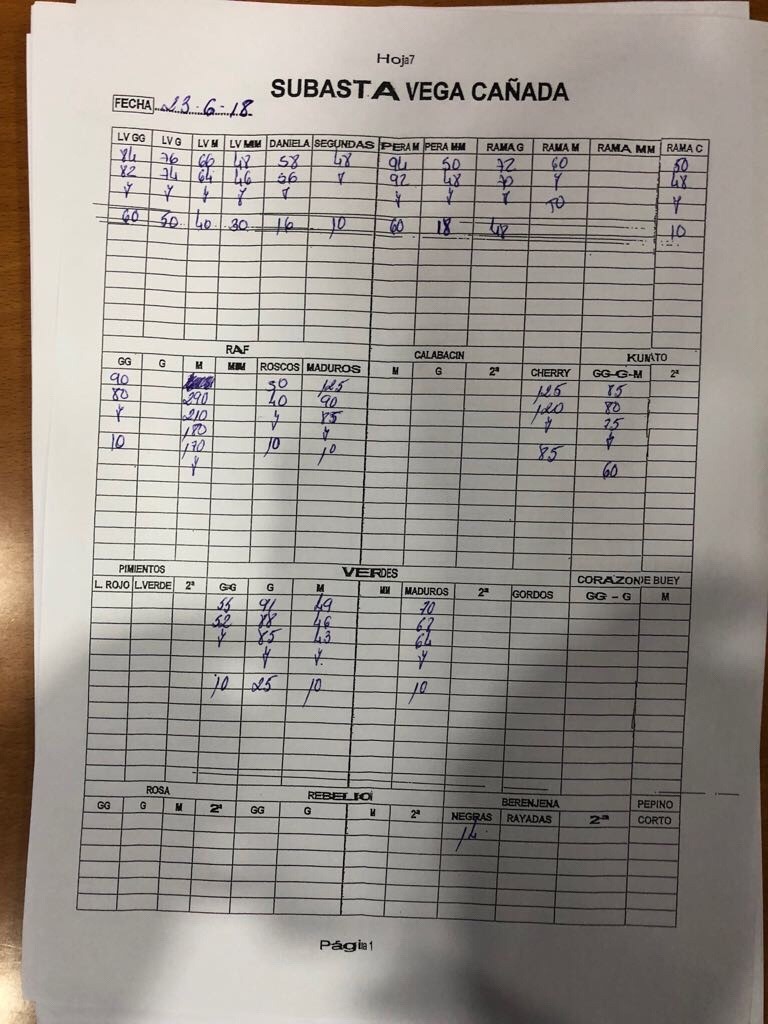 Hoja7
SUBASTA VEGA CAÑADA
FECHA 23-6-18
LV GG LV G LV M LV MM DANIELA SEGUNDAS PERA M PERA MM RAMA G RAMA M RAMA MM RAMA C
84 76 66 48 58 48 94 50 72 60 50
82 74 64 46 56 y 92 48 70 y 48
y y y y y y y y 50 y
60 50 40 30 16 10 60 18 48 10
RAF CALABACIN KUMATO
GG G M MM ROSCOS MADUROS M G 2ª CHERRY GG-G-M 2ª
90 50 125 125 85
80 290 40 90 120 80
y 210 y 85 y 75
180 y y
10 170 10 10 85
y 60
PIMIENTOS VERDES CORAZON DE BUEY
L. ROJO L.VERDE 2ª GG G M MM MADUROS 2ª GORDOS GG - G M
55 91 49 70
52 88 46 67
y 85 43 64
y y y
10 25 10 10
ROSA REBELION BERENJENA PEPINO
GG G M 2ª GG G M 2ª NEGRAS RAYADAS 2ª CORTO
14
Página 1